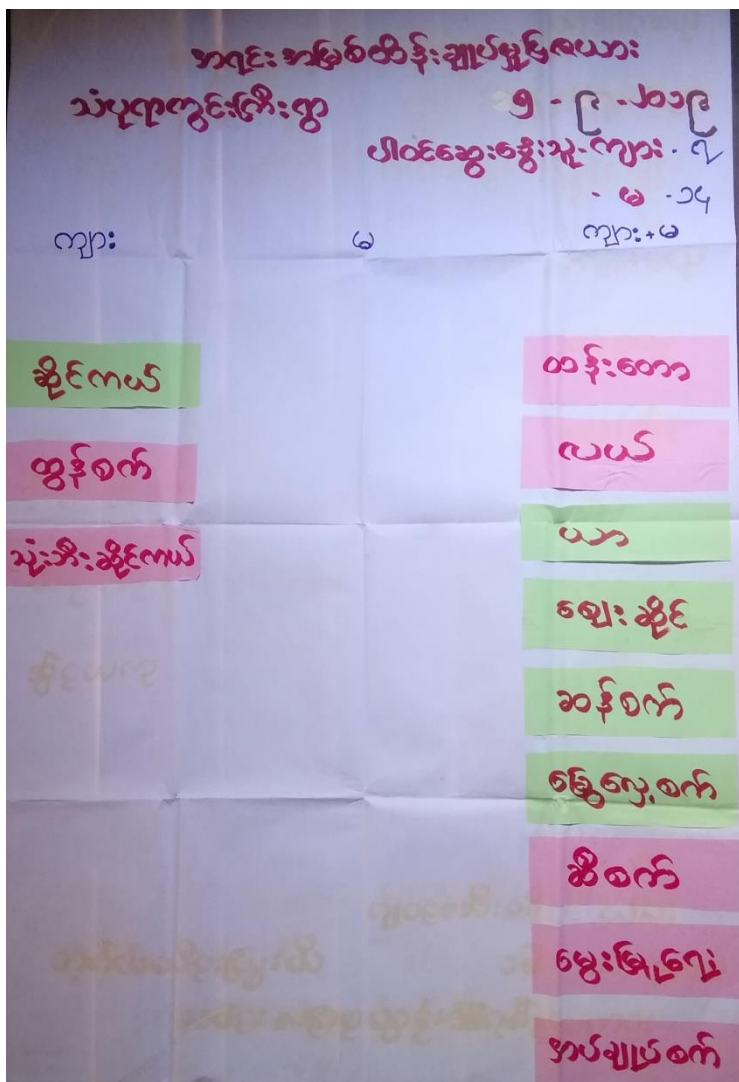 အရင်းအမြစ်ထိန်းချုပ်မှုပြဇယား
သံပုရာကွင်းကြီးရွာ ၅ - ၉ - ၂၀၁၉
ပါဝင်ဆွေးနွေးသူ - ကျား - ၇
- မ - ၁၄
ကျား မ ကျား+မ
ဆိုင်ကယ် ထန်းတော
ထွန်စက် လယ်
သုံးဘီးဆိုင်ကယ် ယာ
ဈေးဆိုင်
ဆန်စက်
ခြွေလှေ့စက်
ဆီစက်
မွေးမြူရေး
အပ်ချုပ်စက်